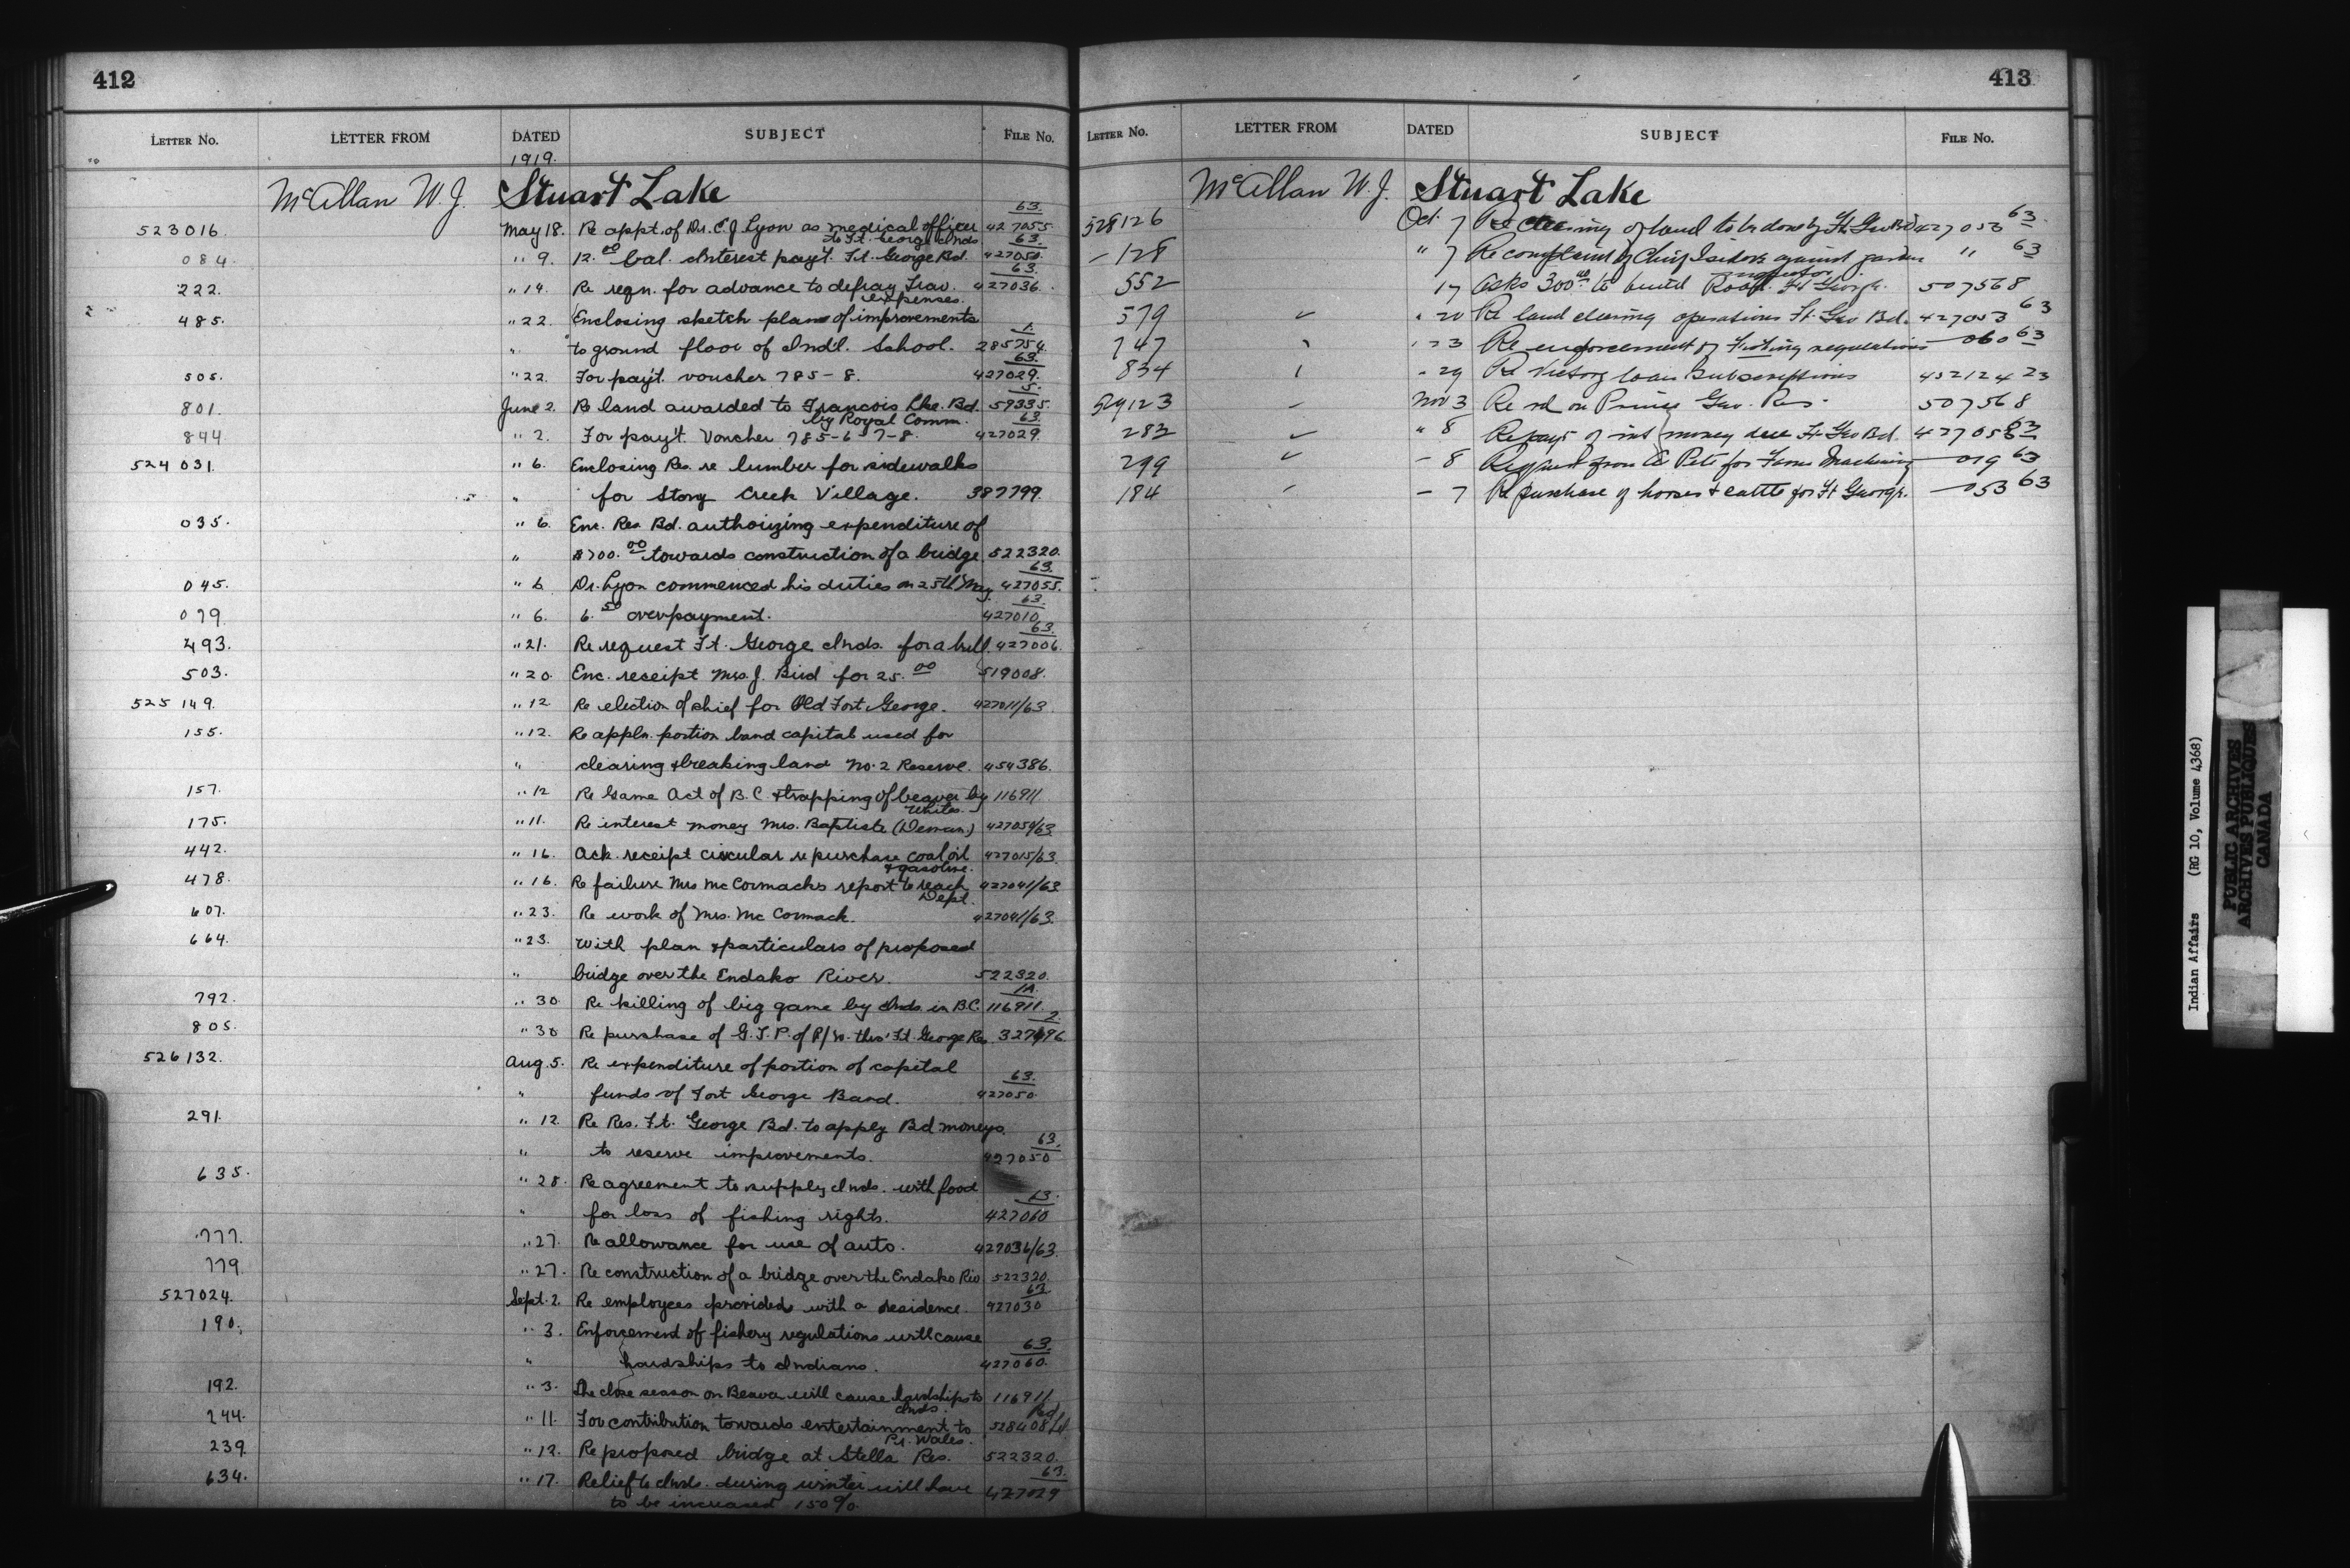 412
LETTER No. LETTER FROM DATED SUBJECT FILE No.
1919.
McAllan W. J. Stuart Lake
523016. May 18. Re appt. of Dr. C. J. Lyon as medical officer to Ft. George Inds 427055 63.
084. " 9. 12.00 bal. Interest pay't. Ft. George Bd. 427050. 63.
222. " 14. Re reqn. for advance to defray Trav. expenses. 427036. 63.
485. " 22. Enclosing sketch plans of improvements
" to ground floor of Ind'l. School. 285754. 1.
505. " 22. For pay't. voucher 785-8. 427029. 63.
801. June 2. Re land awarded to Francois Lke. Bd. by Royal Comm. 59335. 5.
844. " 2. For pay't. Voucher 785-6-7-8. 427029. 63.
524031. " 6. Enclosing Res. re lumber for sidewalks
" for Stony Creek Village. 387799.
035. " 6. Enc. Res. Bd. authorizing expenditure of
" $700.00 towards construction of a bridge. 522320.
045. " 6 Dr. Lyon commenced his duties on 25th May. 427055. 63.
079. " 6. 6.50 overpayment. 427010. 63.
493. " 21. Re request Ft. George Inds. for a bull. 427006. 63.
503. " 20. Enc. receipt Mrs. J. Bird for 25.00 519008.
525149. " 12 Re election of chief for Old Fort George. 427011/63
155. " 12. Re appln. portion band capital used for
" clearing & breaking land No. 2 Reserve. 454386.
157. " 12 Re Game Act of B.C. & trapping of beaver by Whites. 116911.
175. " 11. Re interest money Mrs. Baptiste (Deman.) 427054/63
442. " 16. Ack. receipt circular re purchase coal oil & gasoline. 427015/63.
478. " 16. Re failure Mrs McCormacks report to reach Dept. 427041/63
607. " 23. Re work of Mrs. McCormack. 427041/63.
664. " 23. With plan & particulars of proposed
" bridge over the Endako River. 522320.
792. " 30. Re killing of big game by Inds. in B.C. 116911. 1A.
805. " 30 Re purchase of G.T.P. of R/W. thro' Ft. George Res. 2.
526132. Aug. 5. Re expenditure of portion of capital
" funds of Fort George Band. 427050. 63.
291. " 12. Re Res. Ft. George Bd. to apply Bd moneys
" to reserve improvements. 427050 63.
635. " 28. Re agreement to supply Inds. with food
" for loss of fishing rights. 427060
777. " 27. Re allowance for use of auto. 427036/63.
779. " 27. Re construction of a bridge over the Endako Riv. 522320.
527024. Sept. 2. Re employees provided with a residence. 427030 63
190. " 3. Enforcement of fishery regulations will cause
" hardships to Indians. 427060. 63.
192. " 3. The close season on Beaver will cause hardships to Inds. 116911.
244. " 11. For contribution towards entertainment to Pr. Wales. 528408
239. " 12. Re proposed bridge at Stella Res. 522320.
634. " 17. Relief to Inds. during winter will have 427029 63.
to be increased 150%.
413
LETTER No. LETTER FROM DATED SUBJECT FILE No.
McAllan W. J. Stuart Lake
528126 Oct. 7 Re clearing of land to be done by Ft. Geo Bd 427053 63
- 128 " 7 Re complaint of Chief Isidore against " 63
552 17 Asks 300.00 to build Road. Ft George. 507568
579 " 20 Re land clearing operations Ft. Geo Bd. 427053 63
747 " 23 Re enforcement of Fishing regulations - 060 63
834 " 29 Re Victory loan Subscriptions 452124 23
529123 Nov 3 Re rd on Prince Geo. Res. 507568
282 " 8 Re payt of int money due Ft. Geo Bd. 63
299 - 8 Request from Pete for Farm Machinery - 019 63
184 - 7 Re purchase of horses & cattle for Ft George. - 053 63
Indian Affairs (RG 10, Volume 4368)
PUBLIC ARCHIVES
ARCHIVES PUBLIQUES
CANADA